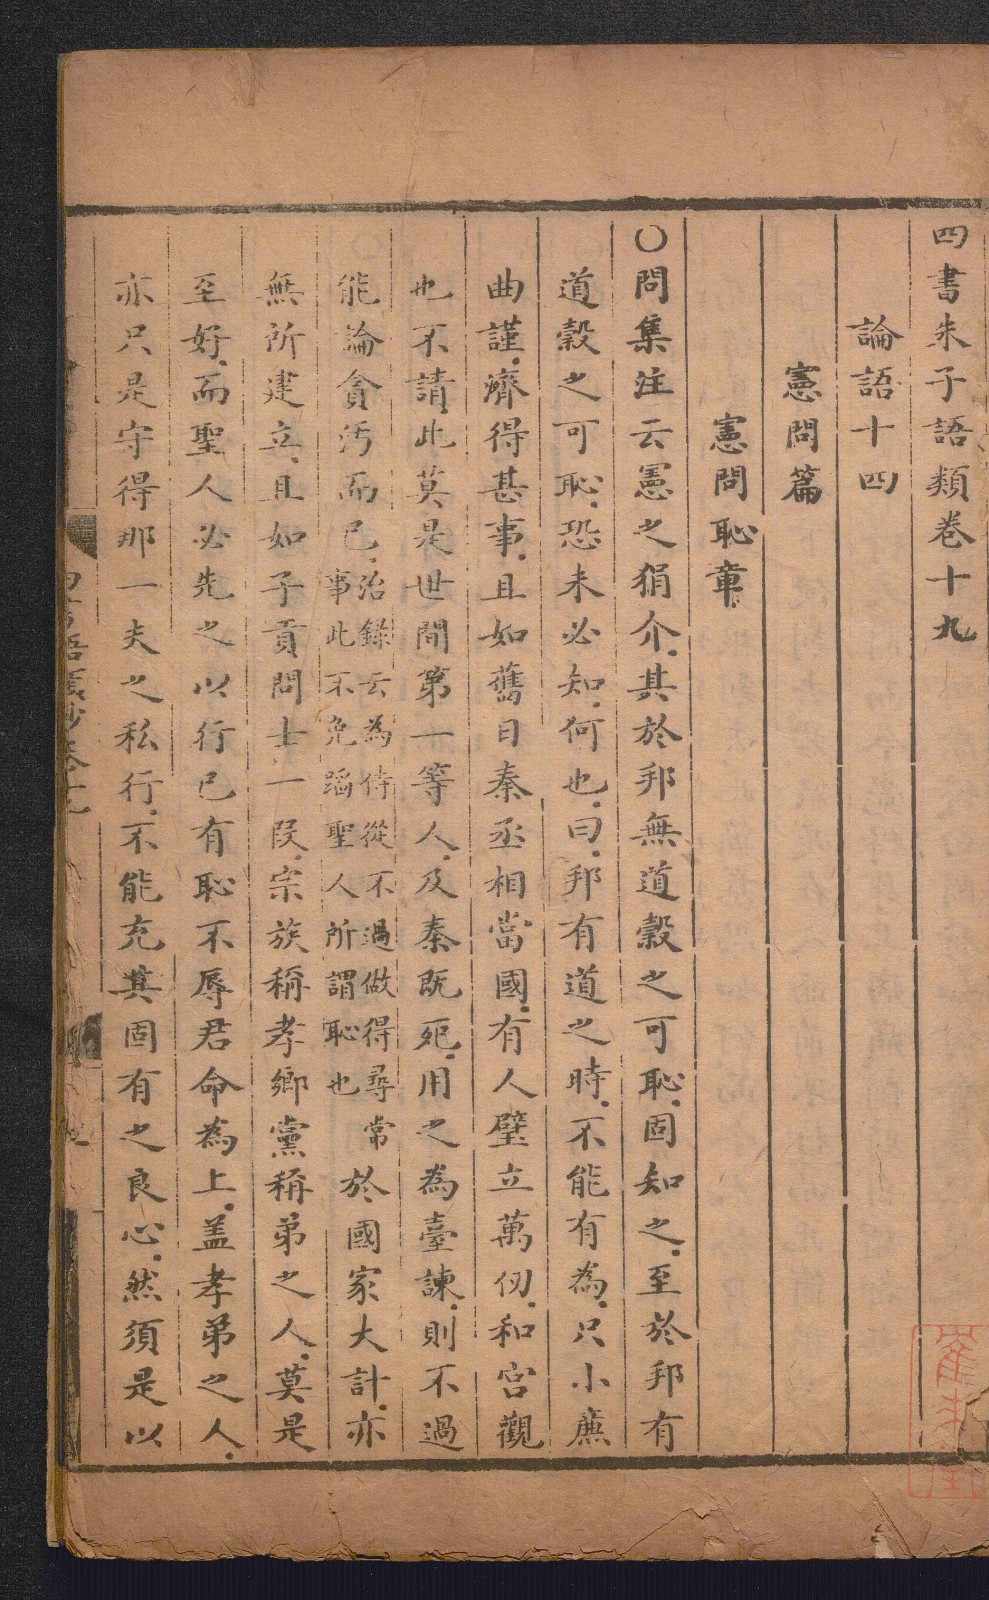 四書朱子語類卷十九
論語十四
憲問篇
憲問恥章
〇問集注云憲之狷介其於邦無道穀之可恥固知之至於邦有
道穀之可恥恐未必知何也曰邦有道之時不能有為只小廉
曲謹濟得甚事且如舊日秦丞相當國有人壁立萬仞和宮觀
也不請此莫是世間第一等人及秦既死用之為臺諫則不過
能論貪污而已治錄云為侍從不過做得尋常事此不免蹈聖人所謂恥也於國家大計亦
無所建立且如子貢問士一段宗族稱孝鄉黨稱弟之人莫是
至好而聖人必先之以行己有恥不辱君命為上盖孝弟之人
亦只是守得那一夫之私行不能充其固有之良心然須是以